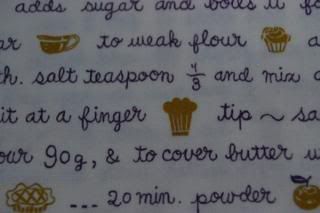 adds sugar and boils it fo
ar to weak flour a
th. salt teaspoon 4/3 and mix a
it at a finger tip ~ sa
our 90g, & to cover butter w
... 20 min. powder